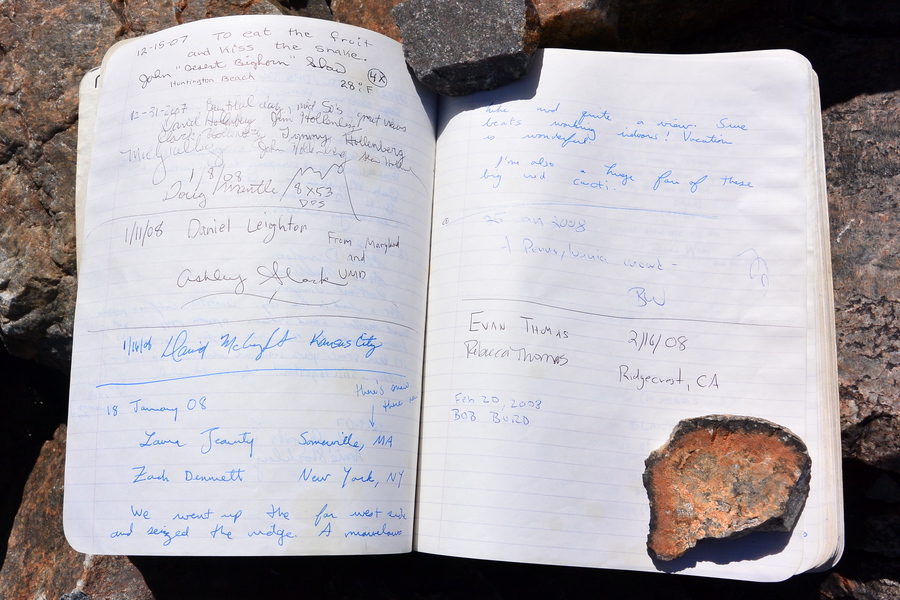 12-15-07 To eat the fruit
and kiss the snake.
John "Desert Bighorn"
Huntington Beach
4x
28°F
12-31-2007 Beautiful day, mid 50's, great views
David Hollenberg Jim Hollenberg
Tommy Hollenberg
John Hollenberg
1/8/08
Doug Mantle 8X53
DPS
1/11/08 Daniel Leighton
From Maryland
and
UMD
Ashley
1/16/08 David Kansas City
there's snow
there
18 January 08
Laura Jeanty Somerville, MA
Zach Dennett New York, NY
We went up the far west side
and seized the wedge. A marvelous
hike and quite a view. Sure
beats working indoors! Vacation
is wonderful
I'm also a huge fan of these
big red cacti.
25 Jan 2008
A Pennsylvania
BW
Evan Thomas 2/16/08
Rebecca Thomas
Ridgecrest, CA
Feb 20, 2008
BOB BURD